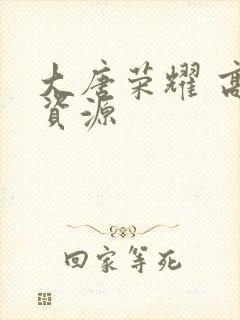 大唐荣耀 高
资源
回家等死